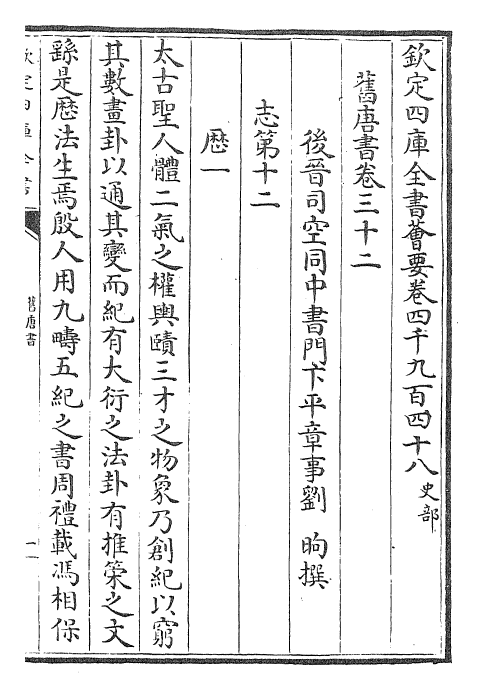 欽定四庫全書薈要卷四千九百四十八 史部
舊唐書卷三十二
後晉司空同中書門下平章事劉 昫撰
志第十二
厯一
太古聖人體二氣之權輿賾三才之物象乃創紀以窮
其數畫卦以通其變而紀有大衍之法卦有推策之文
繇是厯法生焉殷人用九疇五紀之書周禮載馮相保
舊唐書
一